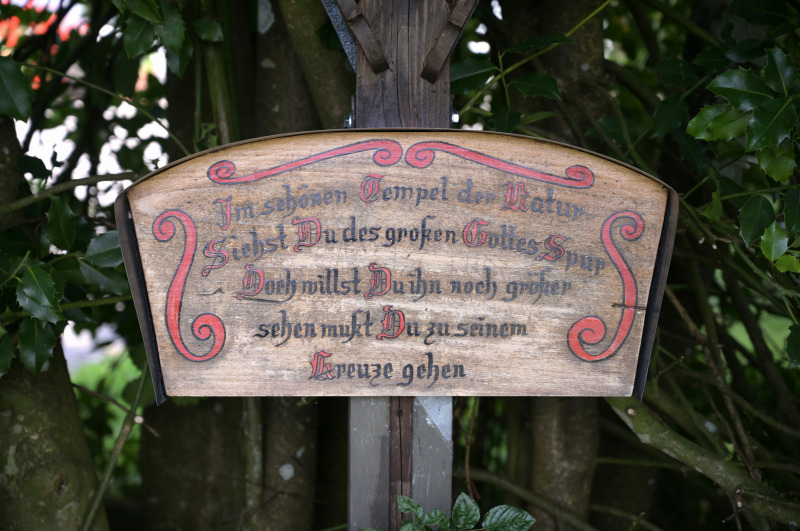 Im schönen Tempel der Natur
Siehst Du des großen Gottes Spur
Doch willst Du ihn noch größer
sehen mußt Du zu seinem
Kreuze gehen